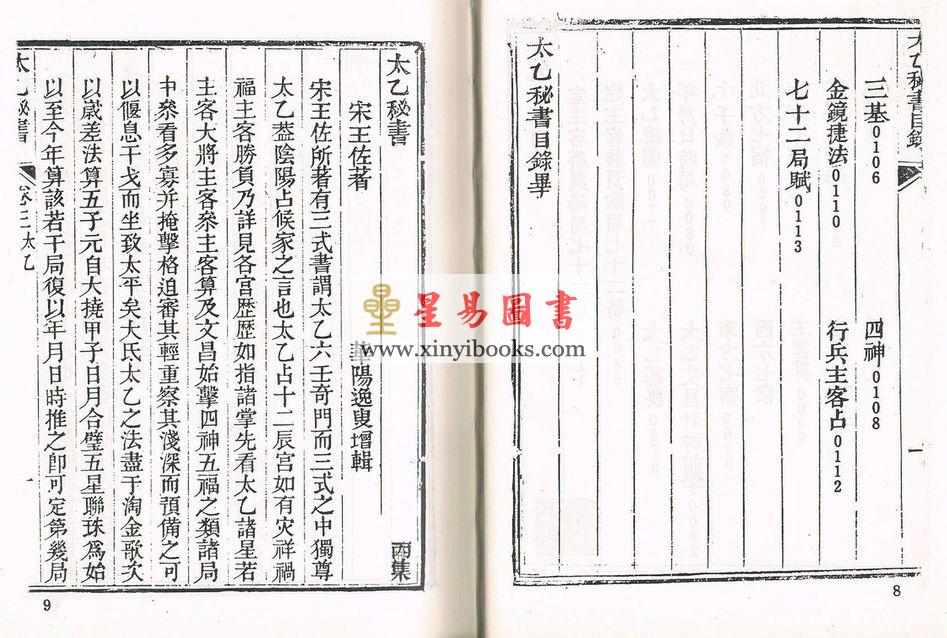 太乙秘書目錄 一
三基0106 四神0108
金鏡捷法0110 行兵主客占0112
七十二局賦0113
太乙秘書目錄畢
8
太乙秘書 丙集
宋王佐著 華陽逸叟增輯
宋王佐所著有三式書謂太乙六壬奇門而三式之中獨尊
太乙葢陰陽占候家之言也太乙占十二辰宮如有灾祥禍
福主客勝負乃詳見各宮歷歷如指諸掌先看太乙諸星若
主客大將主客叅主客算及文昌始擊四神五福之類諸局
中叅看多寡并掩擊格迫審其輕重察其淺深而預備之可
以偃息干戈而坐致太平矣大氐太乙之法盡于淘金歌次
以嵗差法算五子元自大撓甲子日月合璧五星聯珠爲始
以至今年算該若干局復以年月日時推之卽可定第幾局
太乙秘書 卷三太乙 一
9
星易圖書
www.xinyibooks.com